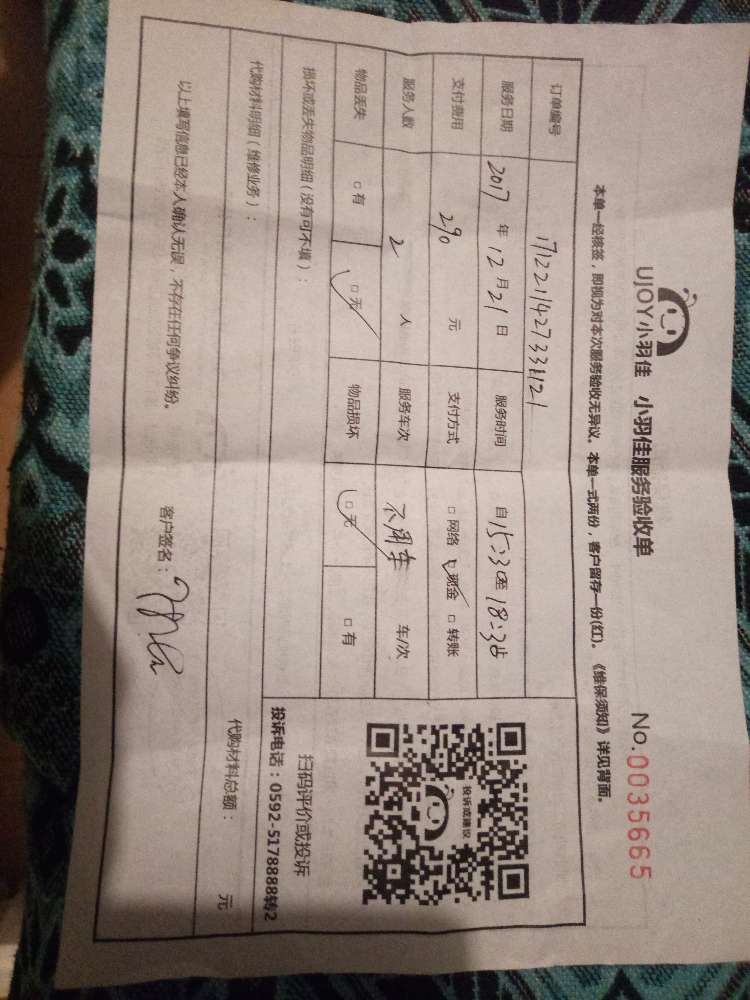 UJOY小羽佳 小羽佳服务验收单 No.0035665
本单一经核签，即视为对本次服务验收无异议。本单一式两份，客户留存一份(红)。《维保须知》详见背面。
订单编号 1712211427331121
服务日期 2017 年 12 月 21 日 服务时间 自 15:30 至 18:30 止
支付费用 290 元 支付方式 □ 网络 □ 现金 □ 转账
服务人数 2 人 服务车次 不用车 车/次
物品丢失 □ 有 □ 无 物品损坏 □ 无 □ 有
投诉或建议
扫码评价或投诉
投诉电话：0592-5178888转2
损坏或丢失物品明细（没有可不填）：
代购材料明细（维修业务）： 代购材料总额： 元
以上填写信息已经本人确认无误，不存在任何争议纠纷。 客户签名：